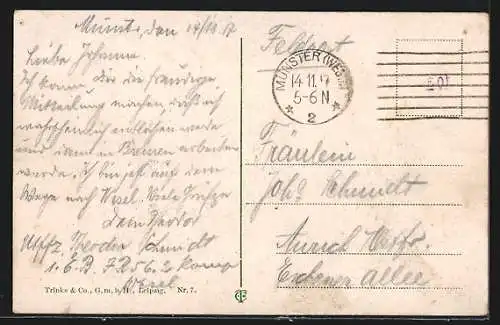 Münster, den 14/11 17
Liebe Johanne.
Ich kann dir die freudige
Mitteilung machen, daß ich
wahrscheinlich entlassen werde
und dann in Bremen arbeiten
werde. Ich bin jetzt auf dem
Wege nach Wesel. Viele Grüße
Dein Theodor
Uffz. Theodor Schmidt
1. E.B. 56. 2 Komp
Wesel
Trinks & Co., G. m. b. H., Leipzig. Nr. 7.
Feldpost
MÜNSTER (WESTF.)
14.11.17
5-6 N
* 2 *
Fräulein
Johe Schmidt
Aurich Ostfr.
Allee